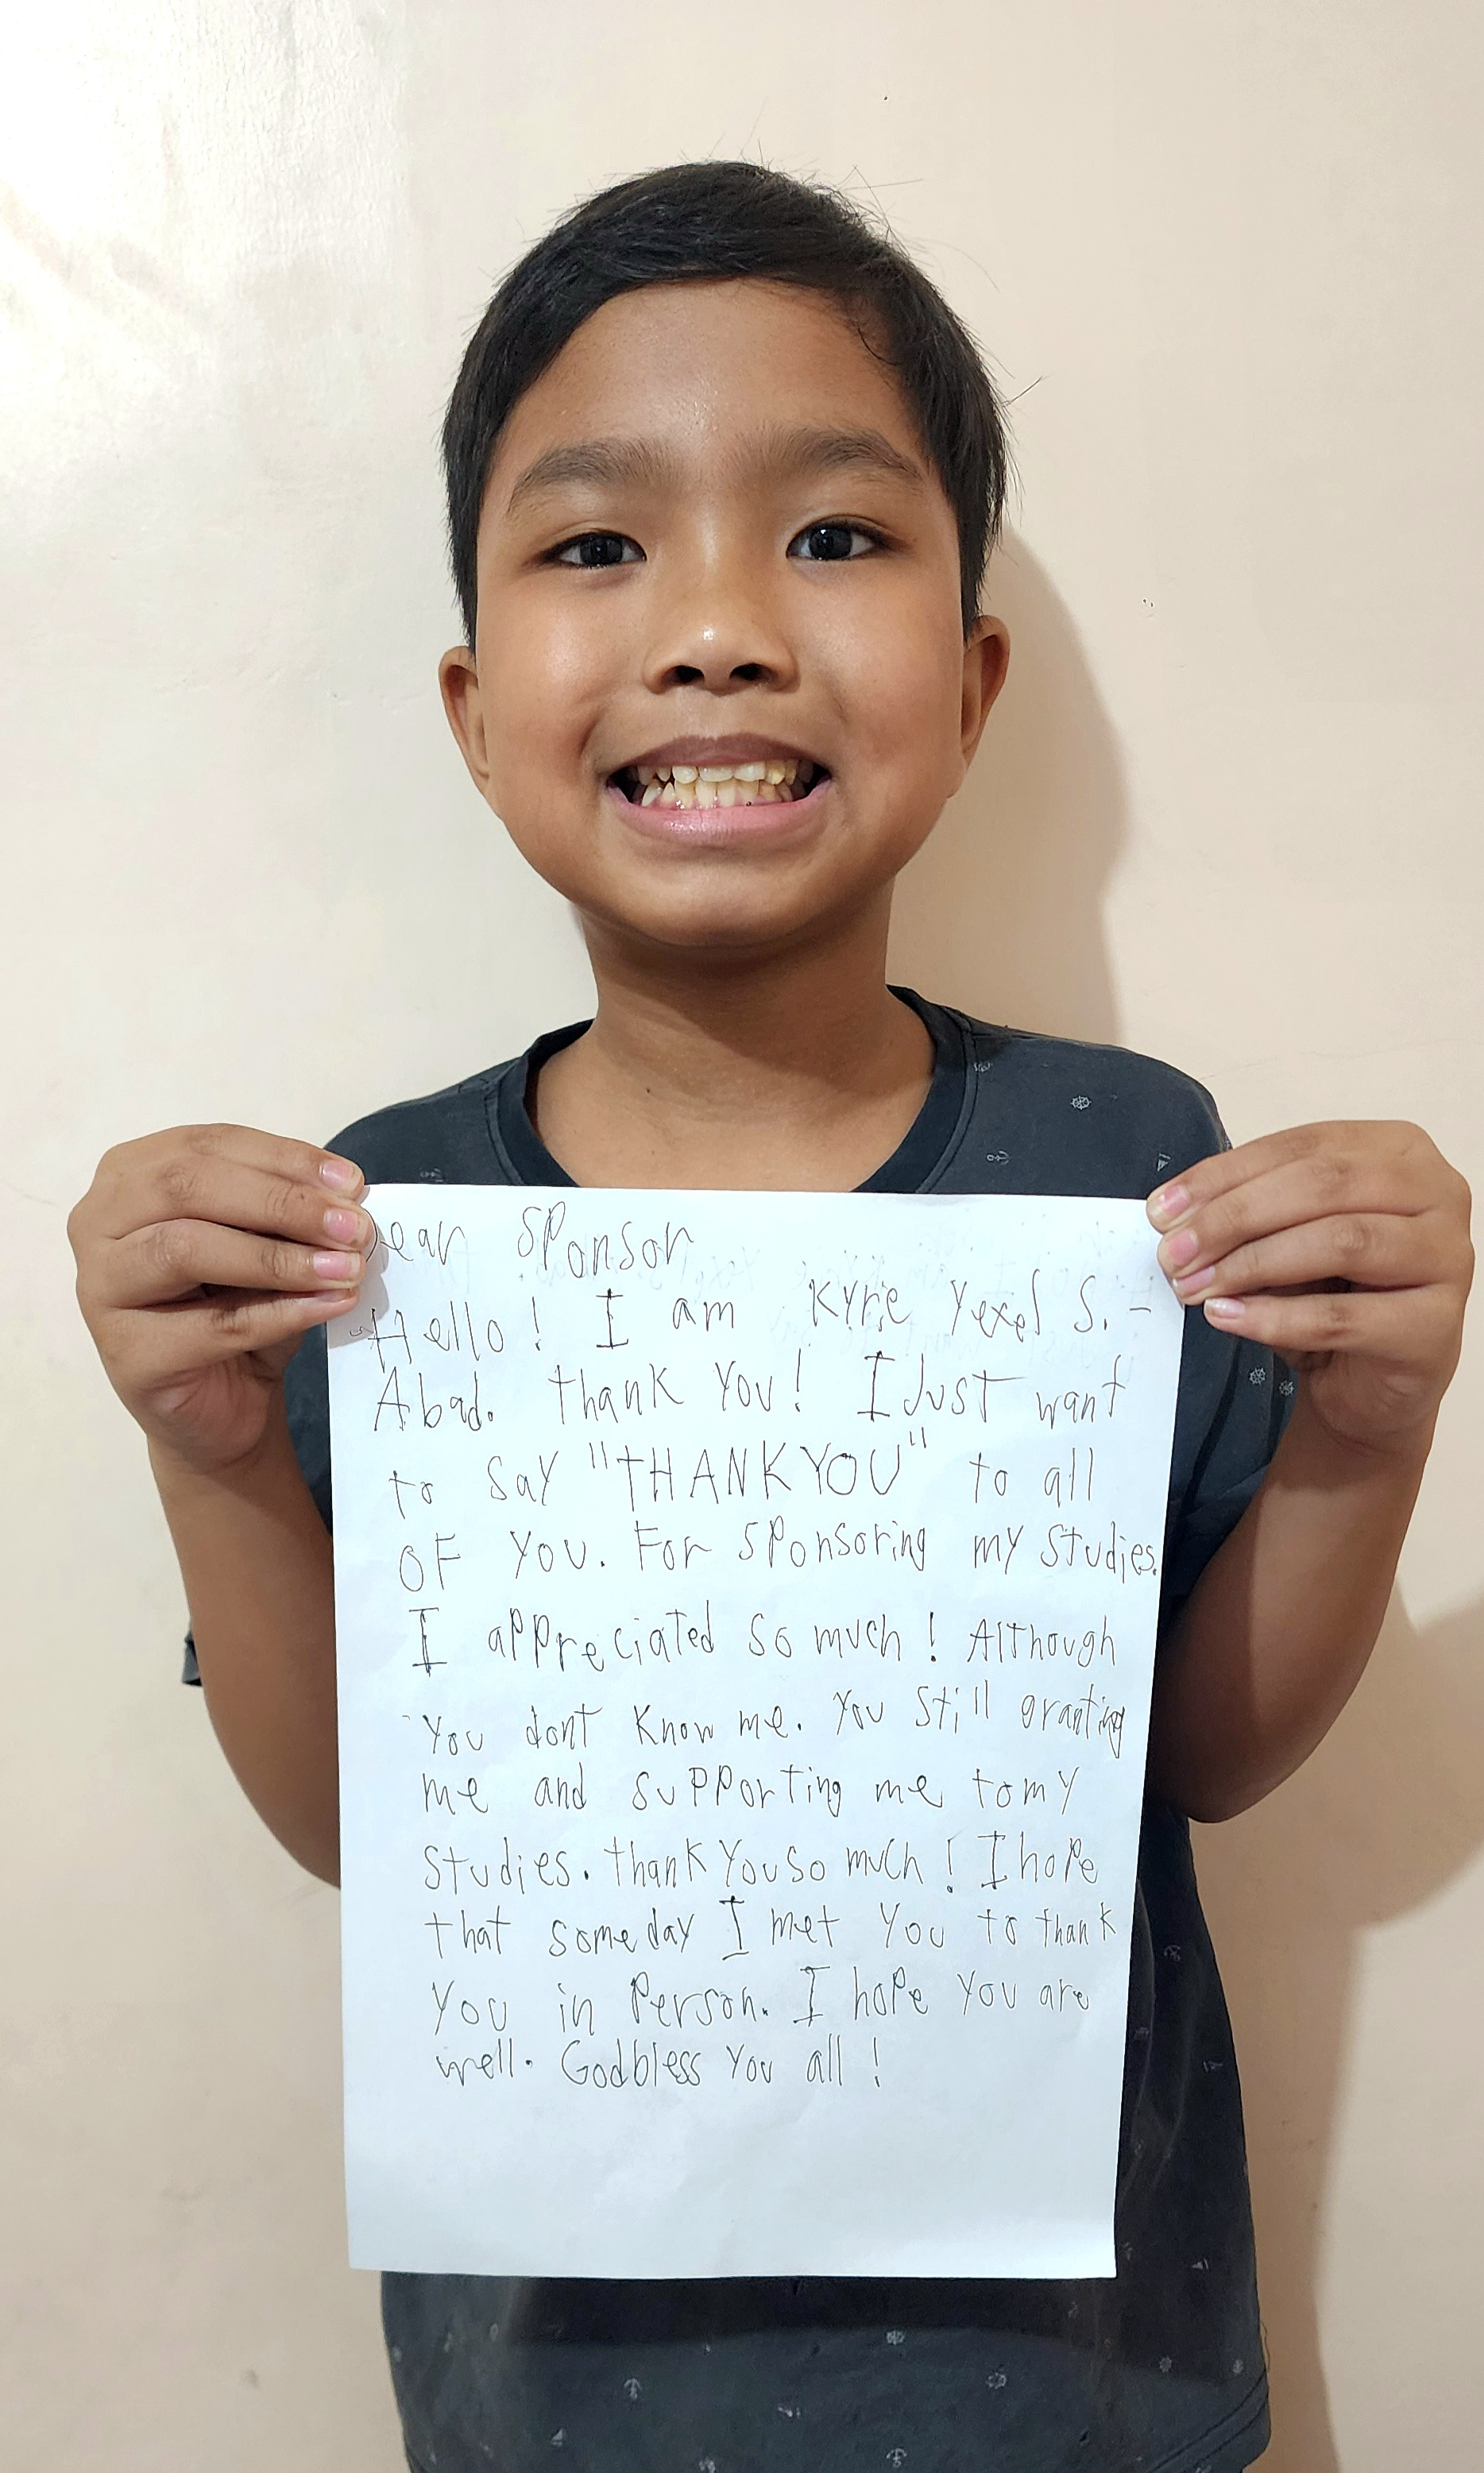 Dear Sponsor
Hello! I am Kyre Yexel S. -
Abad. Thank You! I Just want
to say "THANK YOU" to all
OF YOU. For sponsoring my studies.
I appreciated so much! Although
You dont Know me. You still granting
me and supporting me to my
studies. Thank You so much! I hope
that someday I met You to thank
You in Person. I hope You are
well. God bless You all!